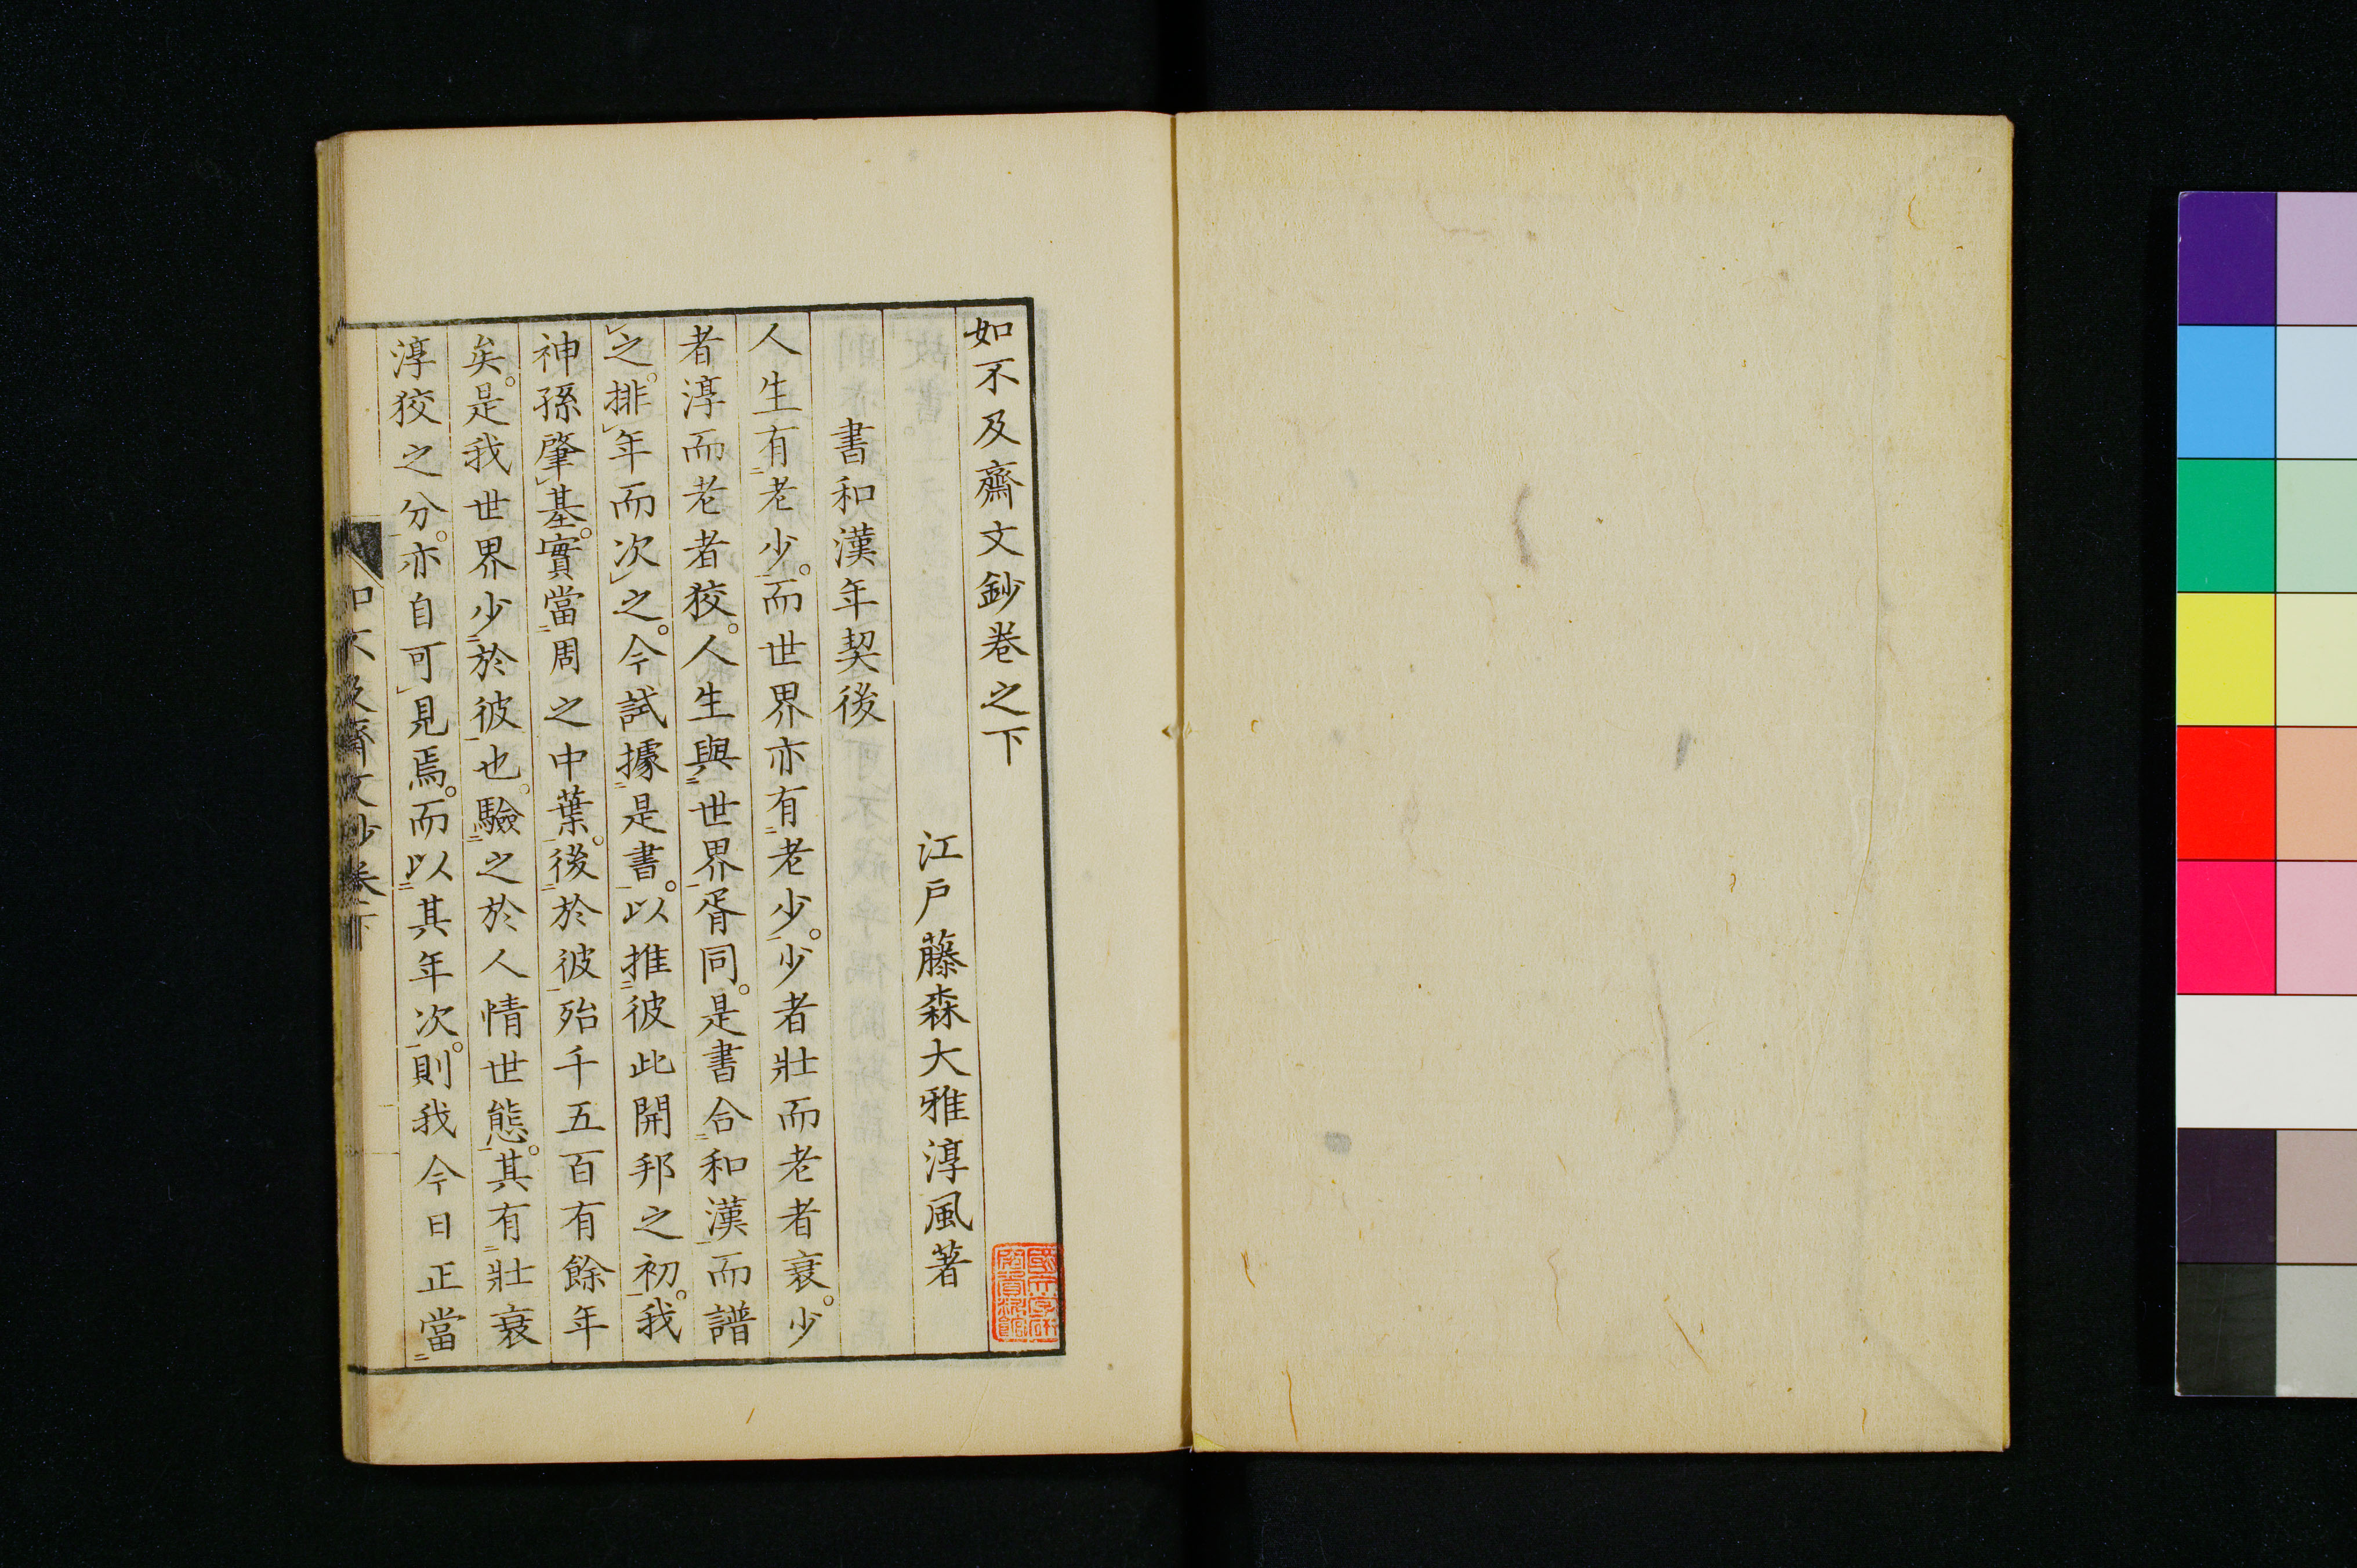 如不及齋文鈔卷之下
江戸藤森大雅淳風著
書和漢年契後
人生有老少。而世界亦有老少。少者壯而老者衰。少
者淳而老者狡。人生與世界胥同。是書合和漢而譜
之。排年而次之。今試據是書。以推彼此開邦之初。我
神孫肇基。實當周之中葉。後於彼殆千五百有餘年
矣。是我世界少於彼也。驗之於人情世態。其有壯衰
淳狡之分。亦自可見焉。而以其年次。則我今日正當
如不及齋文鈔卷下